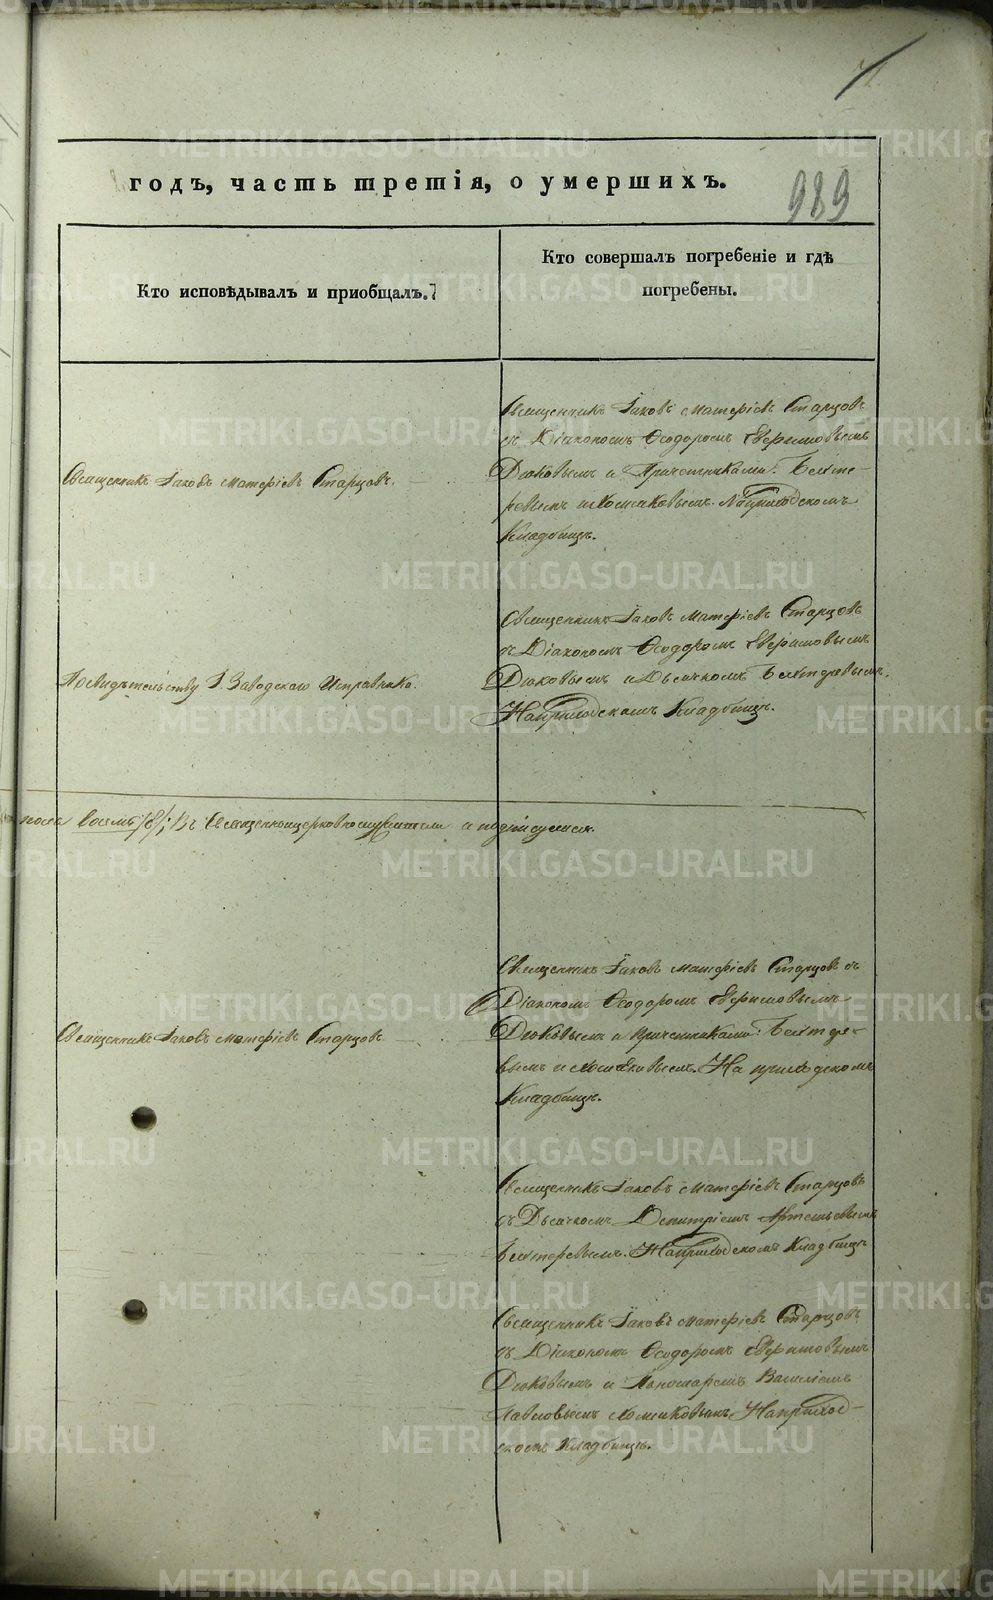 989
годъ, часть третія, о умершихъ.
Кто исповѣдывалъ и приобщалъ.
Кто совершалъ погребеніе и гдѣ
погребены.
Священникъ Іаковъ Матфіевъ Старцовъ.
Священникъ Іаковъ Матфіевъ Старцовъ
съ Діакономъ Ѳеодоромъ Евфимовымъ
и Причетниками: Бехте-
ревымъ и Хомяковымъ. На приходскомъ
Кладбищѣ.
По свидѣтельству Г. Заводскаго Исправника.
Священникъ Іаковъ Матфіевъ Старцовъ
съ Діакономъ Ѳеодоромъ Евфимовымъ
и Дьячкомъ Бехтеревымъ.
На приходскомъ Кладбищѣ.
восемь /8/; Въ Священноцерковнослужители и подписуемся.
Священникъ Іаковъ Матфіевъ Старцовъ
Священникъ Іаковъ Матфіевъ Старцовъ съ
Діакономъ Ѳеодоромъ Евфимовымъ
и Причетниками: Бехтере-
вымъ и Хомяковымъ. На приходскомъ
Кладбищѣ.
Священникъ Іаковъ Матфіевъ Старцовъ
съ Дьячкомъ Димитріемъ Артемьевымъ
Бехтеревымъ. На приходскомъ Кладбищѣ
Священникъ Іаковъ Матфіевъ Старцовъ
съ Діакономъ Ѳеодоромъ Евфимовымъ
и Пономаремъ Василіемъ
Павловымъ Хомяковымъ На приход-
скомъ Кладбищѣ.
METRIKI.GASO-URAL.RU